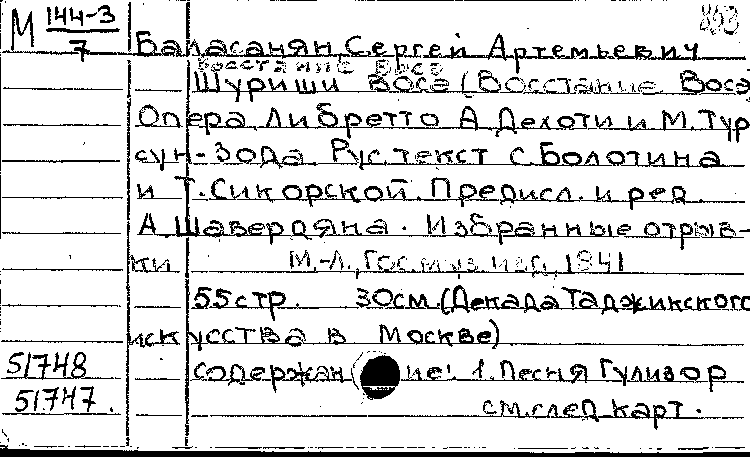 М 144-3/7
853
Баласанян, Сергей Артемьевич
Восстание Восе
Шуриши Восе (Восстание Восе)
Опера. Либретто А. Дехоти и М. Тур
сун-Зода. Рус. текст С. Болотина
и Т. Сикорской. Предисл. и ред.
А. Шавердяна. Избранные отрыв-
ки М.-Л., Гос. муз. изд., 1941
55 стр. 30 см. (Декада Таджикского
искусства в Москве)
51748 содержание: 1. Песня Гулизор
51747. см. след. карт.